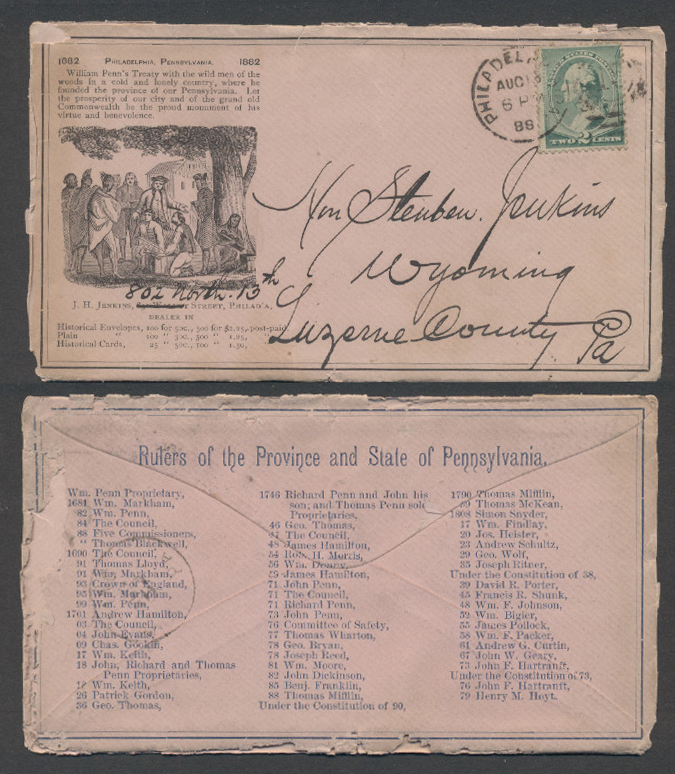 1682 PHILADELPHIA, PENNSYLVANIA. 1882
William Penn's Treaty with the wild men of the
woods in a cold and lonely country, where he
founded the province of our Pennsylvania. Let
the prosperity of our city and of the grand old
Commonwealth be the proud monument of his
virtue and benevolence.
PHILADEL
AUG 18
6 PM
88
TWO 2 CENTS
Hon Steuben Jenkins
Wyoming
Luzerne County Pa
802 North 13th
J. H. JENKINS, STREET, PHILAD'A,
DEALER IN
Historical Envelopes, 100 for 50c., 300 for $1.25, post-paid.
Plain 100 " 30c., 500 " 1.25, "
Historical Cards, 25 " 50c., 100 " 1.50, "
Rulers of the Province and State of Pennsylvania.
Wm. Penn Proprietary,
1681 Wm. Markham,
82 Wm. Penn,
84 The Council,
88 Five Commissioners,
" Thomas Blackwell,
1690 The Council,
91 Thomas Lloyd,
91 Wm. Markham,
93 Crown of England,
95 Wm. Markham,
99 Wm. Penn,
1701 Andrew Hamilton,
03 The Council,
04 John Evans,
09 Chas. Gookin,
17 Wm. Keith,
18 John, Richard and Thomas
Penn Proprietaries,
Wm. Keith,
26 Patrick Gordon,
36 Geo. Thomas,
1746 Richard Penn and John his
son; and Thomas Penn sole
Proprietaries,
46 Geo. Thomas,
The Council,
48 James Hamilton,
54 Rob. H. Morris,
56 Wm. Denny,
59 James Hamilton,
71 John Penn,
71 The Council,
71 Richard Penn,
73 John Penn,
76 Committee of Safety,
77 Thomas Wharton,
78 Geo. Bryan,
78 Joseph Reed,
81 Wm. Moore,
82 John Dickinson,
85 Benj. Franklin,
88 Thomas Mifflin,
Under the Constitution of 90,
1790 Thomas Mifflin,
99 Thomas McKean,
1808 Simon Snyder,
17 Wm. Findlay,
20 Jos. Heister,
23 Andrew Schultz,
29 Geo. Wolf,
35 Joseph Ritner,
Under the Constitution of 38,
39 David R. Porter,
45 Francis R. Shunk,
48 Wm. F. Johnson,
52 Wm. Bigler,
55 James Pollock,
58 Wm. F. Packer,
61 Andrew G. Curtin,
67 John W. Geary,
73 John F. Hartranft,
Under the Constitution of 73,
76 John F. Hartranft,
79 Henry M. Hoyt.